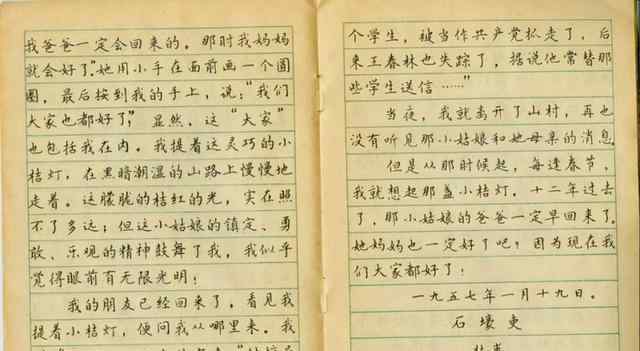 我爸爸一定会回来的。那时我妈妈
就会好了”她用小手在面前画一个圆
圈，最后按到我的手上，说：“我们
大家也都好了”！显然，这“大家”
也包括我在内。我提着这灵巧的小
桔灯，在黑暗潮湿的山路上慢慢地
走着。这朦胧的桔红的光，实在照
不了多远；但这小姑娘的镇定、勇
敢、乐观的精神鼓舞了我，我似乎
觉得眼前有无限光明！
我的朋友已经回来了，看见我
提着小桔灯，便问我从哪里来。我
个学生，被当作共产党抓走了，后
来王春林也失踪了，据说他常替那
些学生送信……”
当夜，我就离开了山村，再也
没有听见那小姑娘和她母亲的消息
但是从那时候起，每逢春节，
我就想起那盏小桔灯。十二年过去
了，那小姑娘的爸爸一定早回来了。
她妈妈也一定好了吧？因为现在我
们大家都好了！
一九五七年一月十九日。
石壕吏